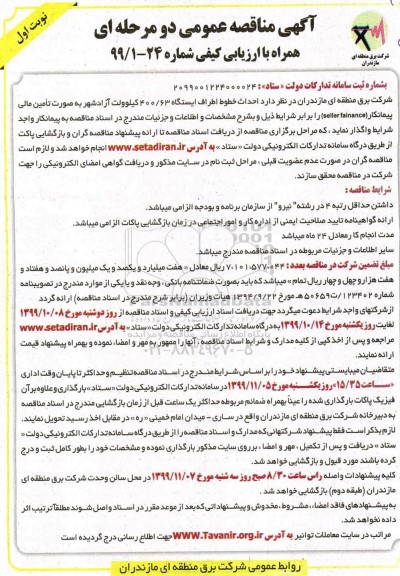 نوبت اول
آگهی مناقصه عمومی دو مرحله ای
همراه با ارزیابی کیفی شماره ۲۴-۹۹/۱
شرکت برق منطقه ای
مازندران
بشماره ثبت سامانه تدارکات دولت «ستاد»: ۲۰۹۹۰۰۱۲۲۴۰۰۰۰۲۴
شرکت برق منطقه ای مازندران در نظر دارد احداث خطوط اطراف ایستگاه ۴۰۰/۶۳ کیلوولت آزادشهر به صورت تأمین مالی
پیمانکار (seller fainance) را برابر شرایط ذیل و بشرح مشخصات و اطلاعات و جزئیات مندرج در اسناد مناقصه به پیمانکار واجد
شرایط واگذار نماید، که مراحل برگزاری مناقصه از دریافت اسناد مناقصه تا ارائه پیشنهاد مناقصه گران و بازگشایی پاکت
از طریق درگاه سامانه تدارکات الکترونیکی دولت «ستاد» به آدرس www.setadiran.ir انجام خواهد شد و لازم است
مناقصه گران در صورت عدم عضویت قبلی، مراحل ثبت نام در سایت مذکور و دریافت گواهی امضای الکترونیکی را جهت
شرکت در مناقصه محقق سازند.
شرایط مناقصه:
داشتن حداقل رتبه ۴ در رشته" نیرو" از سازمان برنامه و بودجه الزامی میباشد.
ارائه گواهینامه تایید صلاحیت ایمنی از اداره کار و امور اجتماعی در زمان بازگشایی پاکات الزامی میباشد.
مدت انجام کار معادل ۲۴ ماه میباشد
سایر اطلاعات و جزئیات مربوطه در اسناد مناقصه مندرج میباشد.
مبلغ تضمین شرکت در مناقصه بعدد: ۷،۱۰۱،۵۷۷،۰۴۴ ریال معادل « هفت میلیارد و یکصد و یک میلیون و پانصد و هفتاد و
هفت هزار و چهل و چهار ریال تمام» میباشد که باید بصورت ضمانتنامه بانکی، وجه نقد و یا یکی از موارد مندرج در تصویبنامه
شماره ۱۲۳۴۰۲/ت۵۰۶۵۹ هـ مورخ ۱۳۹۴/۹/۲۲ هیأت وزیران (بنابر شرح مندرج در اسناد مناقصه) ارائه گردد
ازشرکتهای واجد شرایط دعوت میگردد جهت دریافت اسناد ارزیابی کیفی و اسناد مناقصه از روز دوشنبه مورخ ۱۳۹۹/۱۰/۰۸
لغایت روز یکشنبه مورخ ۱۳۹۹/۱۰/۱۴ به درگاه سامانه تدارکات الکترونیکی دولت«ستاد» به آدرس www.setadiran.ir
مراجعه و پس از اخذ کپی از کلیه مدارک و شرایط اسناد مناقصه، آنها را ممهور به مهر و امضا، نموده و بهمراه پیشنهاد قیمت
ارائه نمایند.
متقاضیان میبایستی پیشنهاد خود را بر اساس شرایط مندرج در اسناد مناقصه تنظیم و حداکثر تا پایان وقت اداری
«ساعت ۱۵/۳۵» روز یکشنبه مورخ ۱۳۹۹/۱۱/۰۵ در سامانه تدارکات الکترونیکی دولت«ستاد»بارگذاری و علاوه بر آن
فیزیک پاکات بارگذاری شده را عیناً بهمراه ضمائم مربوطه حداکثر یک ساعت قبل از زمان بازگشایی مندرج در اسناد مناقصه
به دبیرخانه شرکت برق منطقه ای مازندران واقع در ساری – میدان امام خمینی «ره» در مقابل اخذ رسید تحویل نمایند.
لازم بذکر است فقط پیشنهاد شرکتهائی که مدارک و اسناد مناقصه را از طریق درگاه سامانه تدارکات الکترونیکی دولت«
ستاد» دریافت و پس از تکمیل، مهر و امضا، برروی سایت مذکور بارگذاری نموده و مشخصات خود را بطور کامل ثبت و درج
کرده باشند مورد قبول و بازگشائی خواهد شد.
کلیه پیشنهادات واصله راس ساعت ۸/۳۰ صبح روز سه شنبه مورخ ۱۳۹۹/۱۱/۰۷ در محل سالن وحدت شرکت برق منطقه ای
مازندران (طبقه دوم) بازگشایی خواهد شد.
به پیشنهادهای فاقد امضا، مشروط، مخدوش و پیشنهاداتی که بعد از موعد مقرر در اسناد واصل شوند مطلقاً ترتیب اثر
داده نخواهد شد.
مراتب در سایت معاملات توانیر به آدرس www.Tavanir.org.ir جهت اطلاع رسانی درج گردیده است
روابط عمومی شرکت برق منطقه ای مازندران
۰۲۱-۸۸۳۴۹۶۷۰-۵